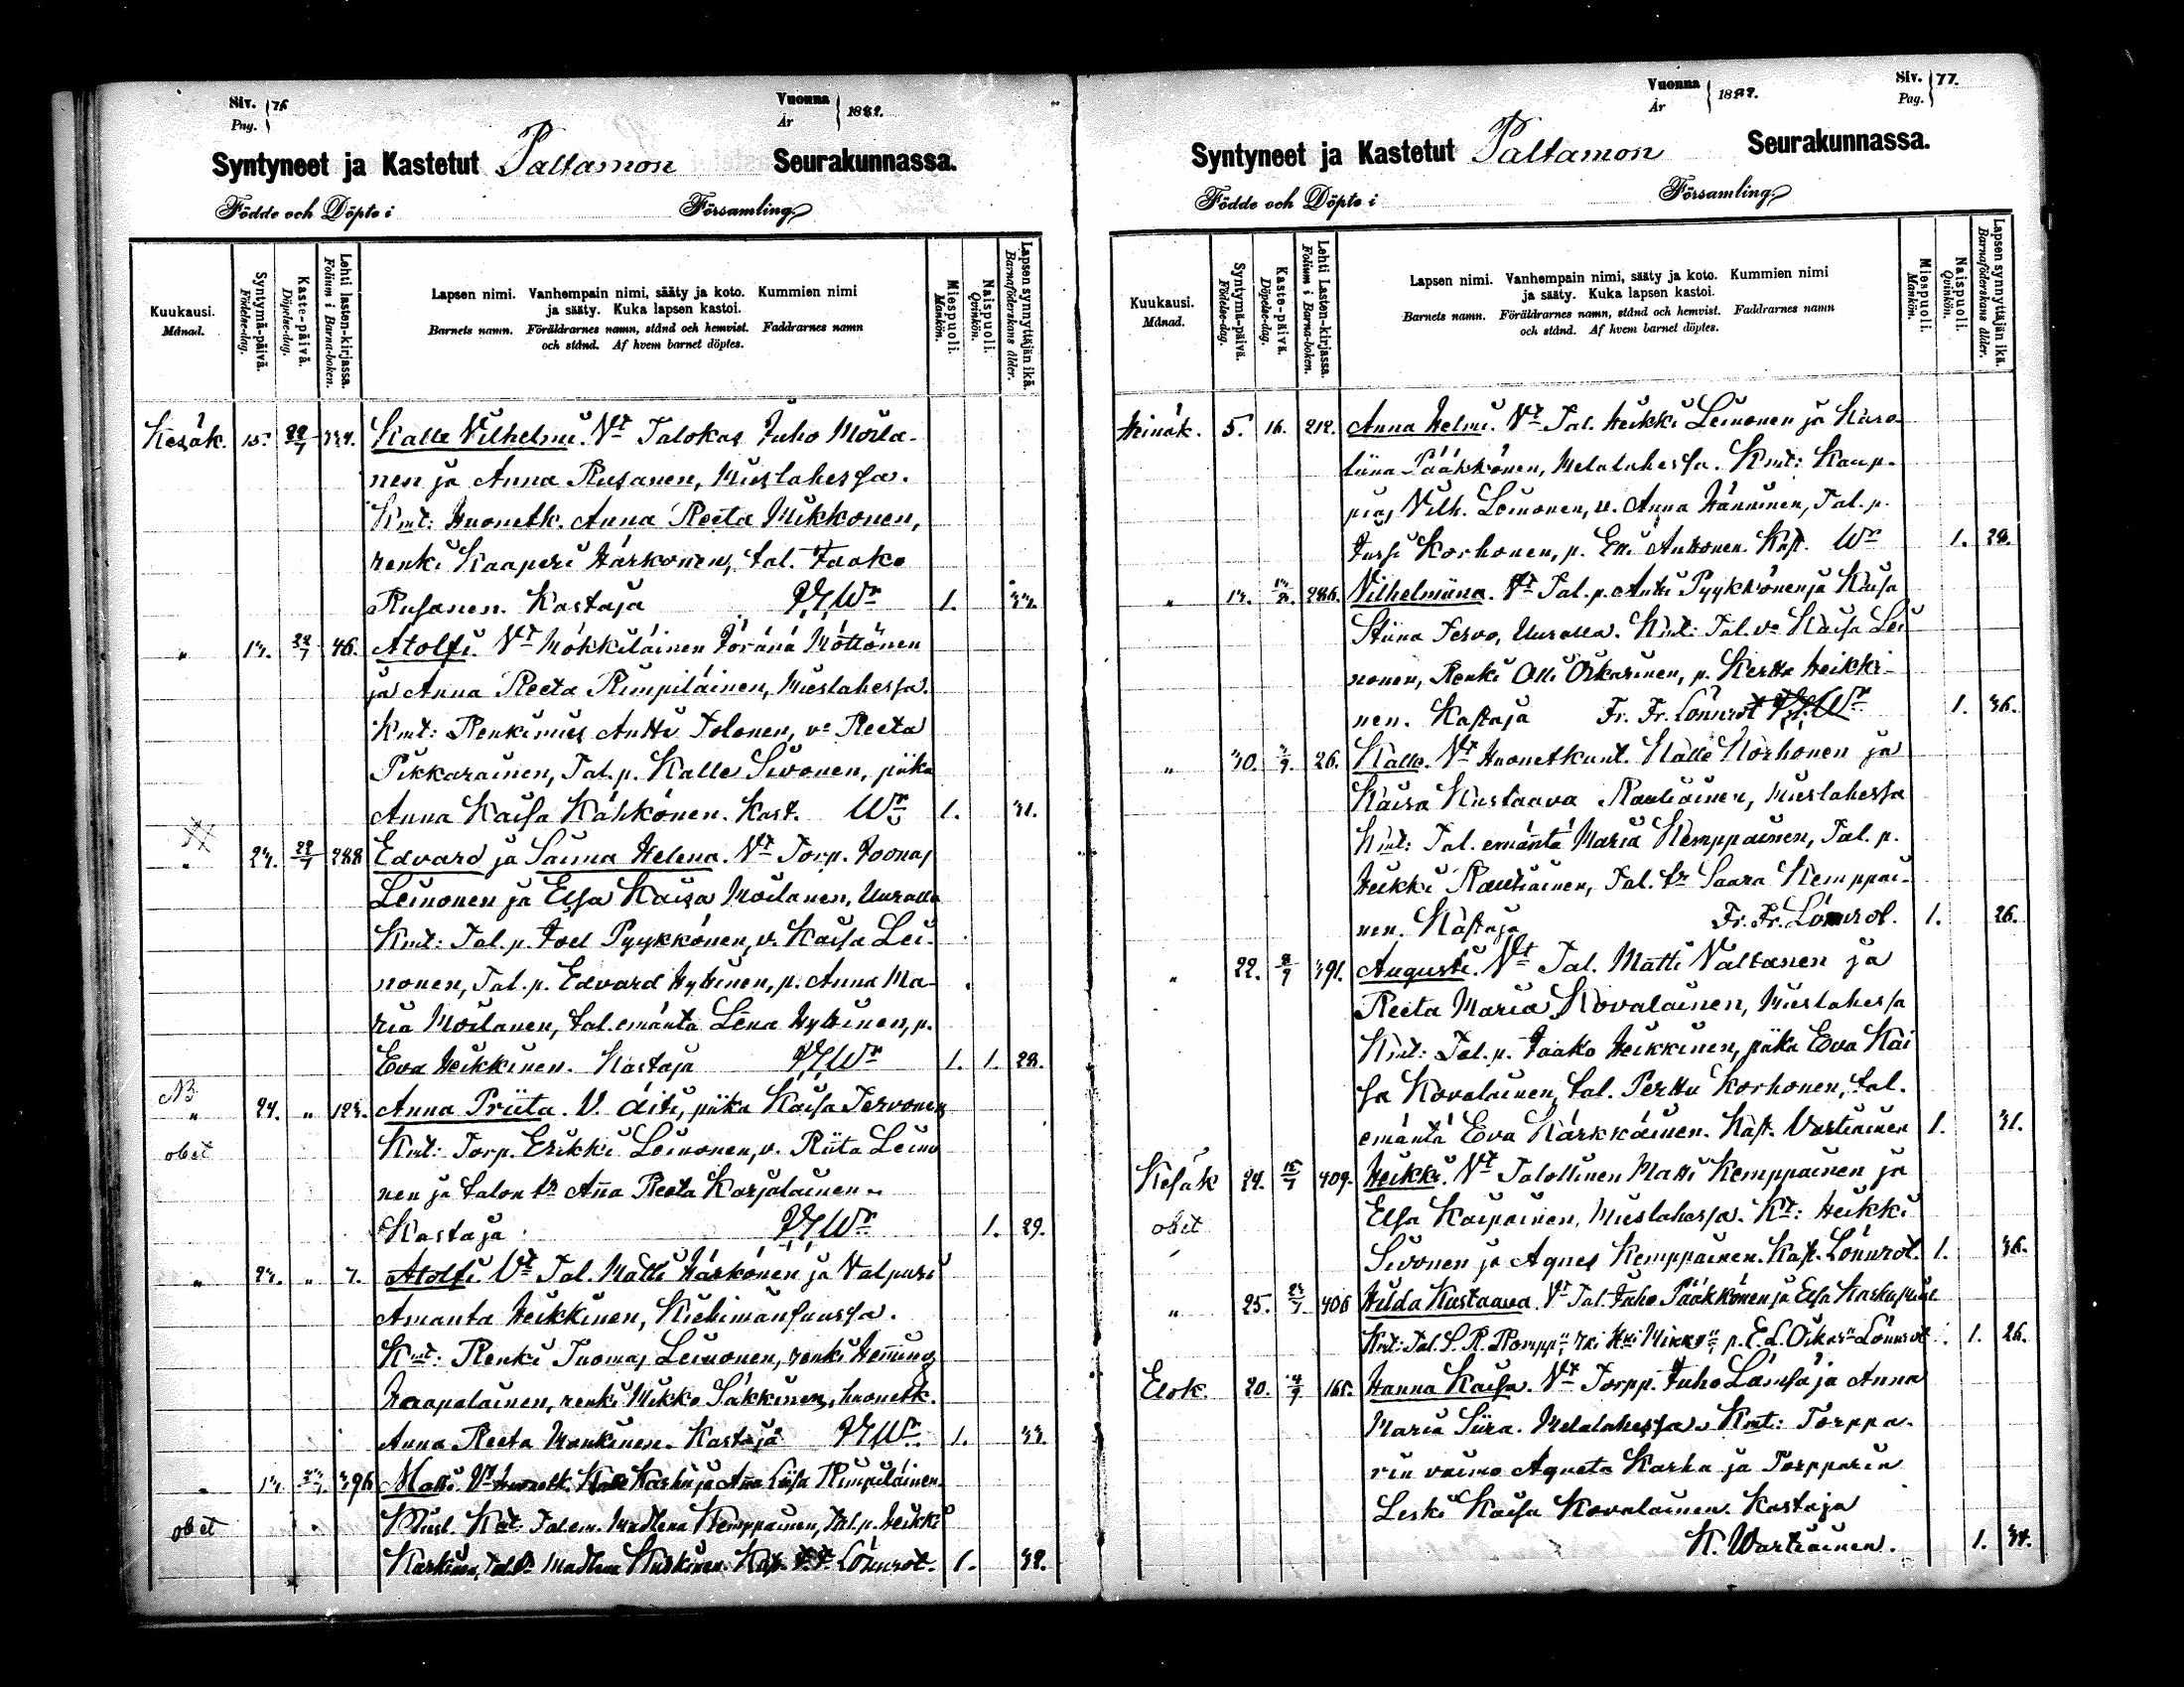 Siv. 76
Pag.
Vuonna 1882.
År
Syntyneet ja Kastetut Paltamon Seurakunnassa.
Födde och Döpte i Församling
Kuukausi. Månad.
Syntymä-päivä. Födelse-dag.
Kaste-päivä. Döpelse-dag.
Lehti lasten-kirjassa. Folium i Barna-boken.
Lapsen nimi. Vanhempain nimi, sääty ja koto. Kummien nimi
ja sääty. Kuka lapsen kastoi.
Barnets namn. Föräldrarnes namn, stånd och hemvist. Faddrarnes namn
och stånd. Af hvem barnet döptes.
Miespuoli. Mankön.
Naispuoli. Qvinkön.
Lapsen synnyttäjän ikä. Barnaföderskans ålder.
Kesäk. 15. Kalle Vilhelmi. Vt Talokas Juho Moila-
nen ja Anna Rusanen, Mieslahessa.
Kmt: Huonetk. Anna Reeta Mikkonen,
renki Kaaperi Härkönen, tal. Jaako
Rusanen. Kastaja Wn 1.
" 46. Atolfi. Vt Mökkiläinen Yöränä Möttönen
ja Anna Reeta Rimpiläinen, Mieslahessa.
Kmt: Renkimies Antti Tolonen, vo Reeta
Pikkarainen, Tal. p. Kalle Sivonen, piika
Anna Kaisa Kähkönen. Kast. Wn 1. 31.
" 288 Edvard ja Sanna Helena. Vt Torp. Joonas
Leinonen ja Elsa Kaisa Moilanen, Uuralla
Kmt: Tal. p. Joel Pyykkönen, v. Kaisa Lei-
nonen, Tal. p. Edvard Hytinen, p. Anna Ma-
ria Moilanen, tal. emäntä Lena Hytinen, p.
Eva Heikkinen. Kastaja Wn 1. 1. 28.
" 24. " Anna Priita. V. äiti, piika Kaisa Tervonen
obit Kmt: Torp. Erikki Leinonen, v. Riita Leino
nen ja talon tr Anna Reeta Karjalainen.
Kastaja Wn 1. 29.
" " 7. Atolfi Vt Tal. Matti Härkönen ja Valpuri
Amanta Heikkinen, Kiehimänsuussa.
Kmt: Renki Tuomas Leinonen, renki Heming
Haapalainen, renki Mikko Säkkinen, huonetk.
Anna Reeta Honkinen. Kastaja Wn 1. 33.
" 396 Matti. Vt Huonetk. Kalle Karhu ja Anna Liisa Rimpiläinen
obit Miesl. Kmt: Tal. em. Madlena Kemppainen, Tal. p. Heikki
Karkinen, Tal. tr Madlena Kast. F. F. Lönnrot. 1. 32.
Siv. 77.
Pag.
Vuonna 1882.
År
Syntyneet ja Kastetut Paltamon Seurakunnassa.
Födde och Döpte i Församling
Kuukausi. Månad.
Syntymä-päivä. Födelse-dag.
Kaste-päivä. Döpelse-dag.
Lehti Lasten-kirjassa. Folium i Barna-boken.
Lapsen nimi. Vanhempain nimi, sääty ja koto. Kummien nimi
ja sääty. Kuka lapsen kastoi.
Barnets namn. Föräldrarnes namn, stånd och hemvist. Faddrarnes namn
och stånd. Af hvem barnet döptes.
Miespuoli. Mankön.
Naispuoli. Qvinkön.
Lapsen synnyttäjän ikä. Barnaföderskans ålder.
Heinäk. 5. 16. 212. Anna Helmi. Vt Tal. Heikki Leinonen ja Karo-
liina Pääkkönen, Melalahessa. Kmt: Kaup-
pias Vilh. Leinonen, v. Anna Hänninen, Tal. p.
Jussi Korhonen, p. Elli Anttonen. Kast. Wn 1. 28.
" 286. Vilhelmiina. Vt Tal. p. Antti Pyykkönen ja Kaisa
Stiina Tervo, Uuralla. Kmt: Tal. vo Kaisa Lei
nonen, Renki Olli Oikarinen, p. Kerttu Heikki-
nen. Kastaja Fr. Fr. Lönnrot 1. 36.
" 30. 26. Kalle. Vt Huonetkunt. Kalle Korhonen ja
Kaisa Kustaava Rautiainen, Mieslahessa
Kmt: Tal. emäntä Maria Kemppainen, Tal. p.
Heikki Rautiainen, Tal. tr Saara Kemppai-
nen. Kastaja Fr. Fr. Lönnrot. 1. 26.
" 22. 391. Augusti. Vt Tal. Matti Valtanen ja
Reeta Maria Kovalainen, Mieslahessa
Kmt: Tal. p. Jaako Heikkinen, piika Eva Kai
sa Kovalainen, tal. Perttu Korhonen, tal.
emäntä Eva Kärkkäinen. Kast. Vartiainen 1. 31.
Kesäk 24. 409. Heikki. Vt Talollinen Matti Kemppainen ja
obit Elsa Kaipainen, Mieslahessa. Kt: Heikki
Sivonen ja Agnes Kemppainen. Kast. Lönnrot. 1. 36.
" 25. 406 Hilda Kustaava. Vt Tal. Juho Pääkkönen ja Elsa
Kmt: Tal. Lönnrot 1. 26.
Elok. 20. 165. Hanna Kaisa. Vt Torpp. Juho Lämsä ja Anna
Maria Siira. Melalahessa. Kmt: Torppa-
rin vaimo Agneta Karhu ja Torpparin
Leski Kaisa Kovalainen. Kastaja
K. Wartiainen. 1. 34.